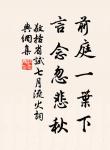 前庭一葉下
言念忽悲秋
敬括省試七月流火詞
典網集